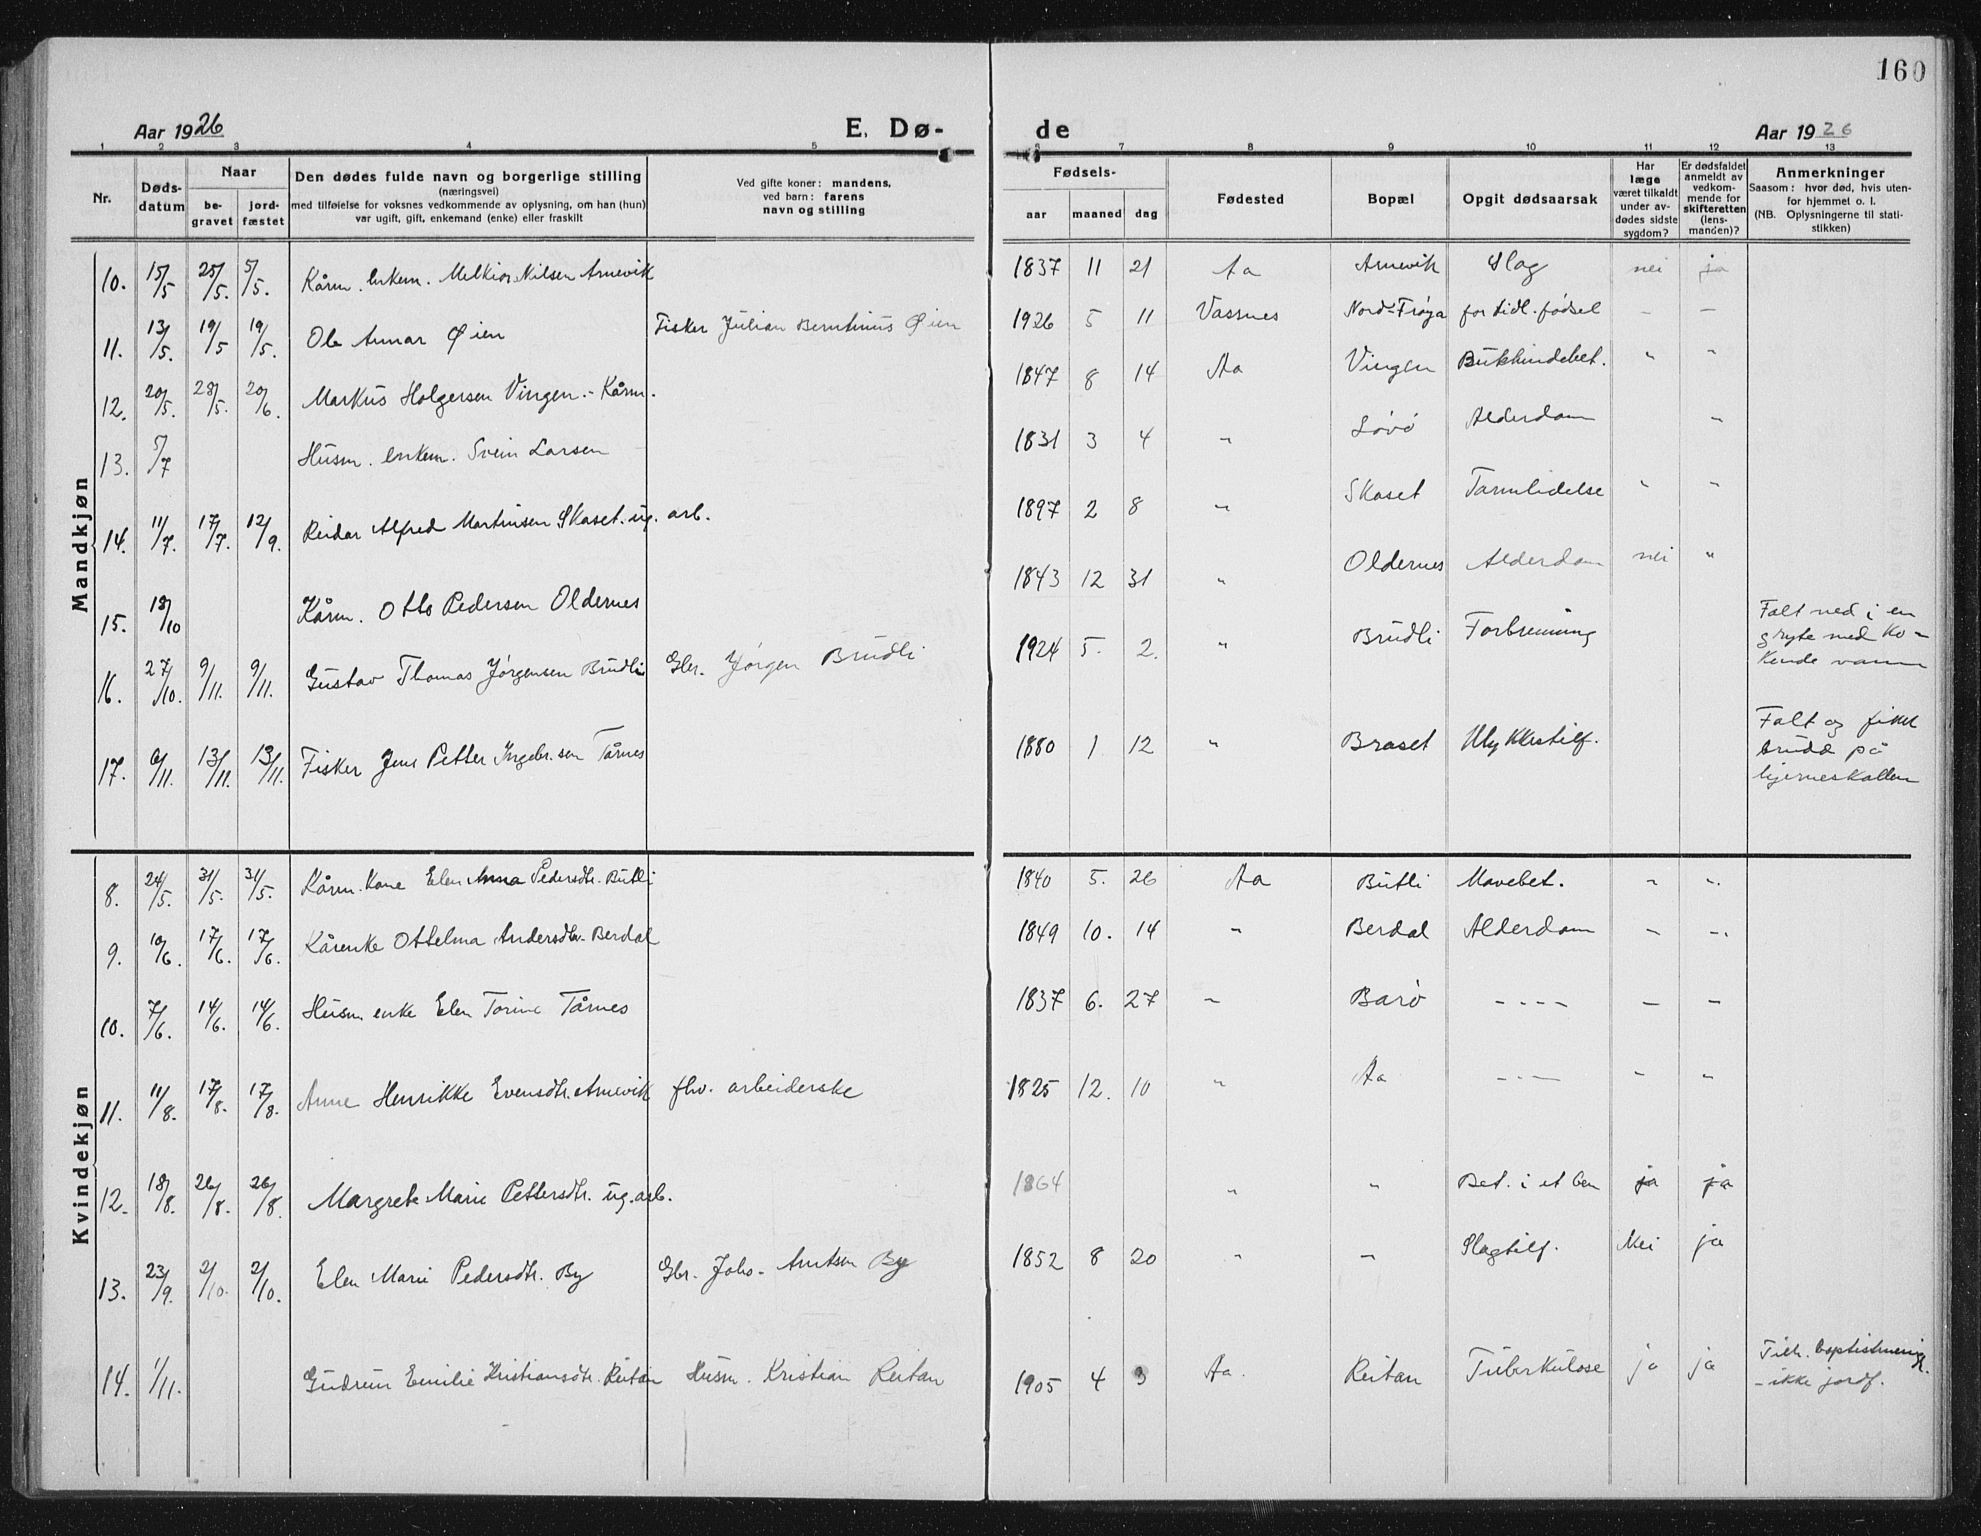 160
Aar 1926
E. Dø-
de
Aar 1926
1 2 3 4 5 6 7 8 9 10 11 12 13
Nr.
Døds-
datum
Naar
be-
gravet
jord-
fæstet
Den dødes fulde navn og borgerlige stilling
(næringsvei)
med tilføielse for voksnes vedkommende av oplysning, om han (hun)
var ugift, gift, enkemand (enke) eller fraskilt
Ved gifte koner: mandens,
ved barn: farens
navn og stilling
Fødsels-
aar maaned dag
Fødested
Bopæl
Opgit dødsaarsak
Har
læge
været tilkaldt
under av-
dødes sidste
sygdom?
Er dødsfaldet
anmeldt av
vedkom-
mende for
skifteretten
(lens-
manden)?
Anmerkninger
Saasom: hvor død, hvis uten-
for hjemmet o. l.
(NB. Oplysningerne til stati-
stikken)
Mandkjøn
10. 15/5 25/5. 5/5. Kårm. enkem. Melkior Nilsen Arnevik 1837 11 21 Aa Arnevik Slag nei ja
11. 13/5. 19/5 19/5. Ole Annar Øien Fisker Julian Berntinus Øien 1926 5 11 Vassnes Nord-Frøya for tidl. fødsel - -
12. 20/5. 28/5. 20/6. Markus Holgersen Vingen.- Kårm. 1847 8 14 Aa Vingen Bukhindebet. " "
13. 5/7 Husm. enkem. Svein Larsen 1831 3 4 " Løvø Alderdom "
14. 11/7. 17/7. 12/9. Reidar Alfred Martinsen Skaset. ug. arb. 1897 2 8 " Skaset Tarmlidelse " "
15. 18/10 Kårm. Otto Pedersen Oldernes 1843 12 31 " Oldernes Alderdom nei "
16. 27/10. 9/11. 9/11. Gustav Thomas Jørgensen Brudli Gbr. Jørgen Brudli 1924 5. 2. " Brudli Forbrenning Falt ned i en
gryte med ko-
kende vann
17. 6/11. 13/11. 13/11. Fisker Jens Petter Ingebr.sen Tårnes 1880 1 12 " Braset Ulykkestilf. Falt og fikk
brudd på
hjerneskallen
Kvindekjøn
8. 24/5. 31/5. 31/5. Kårm. Kone Elen Anna Pedersdtr. Butli 1840 5. 26 Aa Butli Mavebet. " ".
9. 10/6. 17/6. 17/6. Kårenke Ottelma Andersdtr. Berdal 1849 10. 14 " Berdal Alderdom - -.
10. 7/6. 14/6. 14/6. Husm. enke Elen Torine Tårnes 1837 6. 27 - Barø ---- - -
11. 11/8. 17/8. 17/8. Anne Henrikke Evensdtr. Arnevik fhv. arbeiderske 1825 12. 10 " Aa --- " "
12. 18/8. 26/8. 26/8. Margrete Marie Pettersdtr. ug. arb. 1864 " " Bet. i et ben ja ja
13. 23/9. 2/10. 2/10. Elen Marie Pedersdtr. By Gbr. Johs. Arntsen By 1852 8 20 " - Slagtilf. Nei ja
14. 1/11. Gudrun Emilie Kristiansdtr. Reitan Husm. Kristian Reitan 1905 4 3 Aa. Reitan Tuberkulose ja ja Tilh. baptistmenigh.
- ikke jordf.